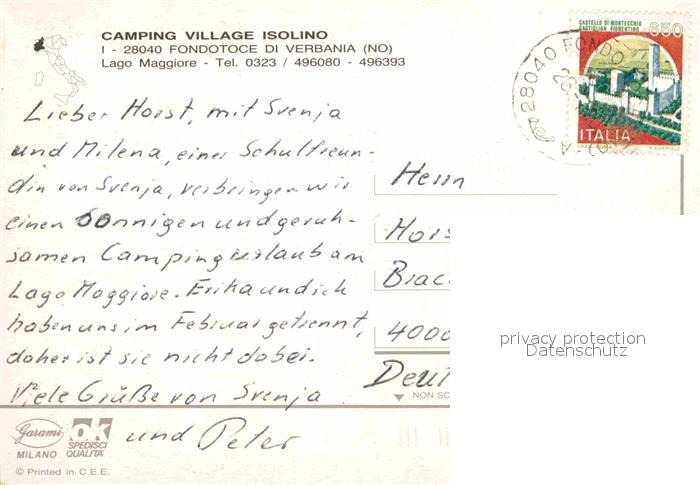 CAMPING VILLAGE ISOLINO
I - 28040 FONDOTOCE DI VERBANIA (NO)
Lago Maggiore - Tel. 0323 / 496080 - 496393
CASTELLO DI MONTECCHIO
CASTIGLION FIORENTINO
650
ITALIA
28040 FONDO
Lieber Horst, mit Svenja
und Milena, einer Schulfreun-
din von Svenja, verbringen wir
einen sonnigen und geruh-
samen Campingurlaub am
Lago Maggiore. Erika und ich
haben uns im Februar getrennt,
daher ist sie nicht dabei.
Viele Grüße von Svenja
und Peter
Herrn
Hors
Brac
4000
Deut
NON SC
privacy protection
Datenschutz
Garami
MILANO
OK
SPEDISCI
QUALITÀ
© Printed in C.E.E.